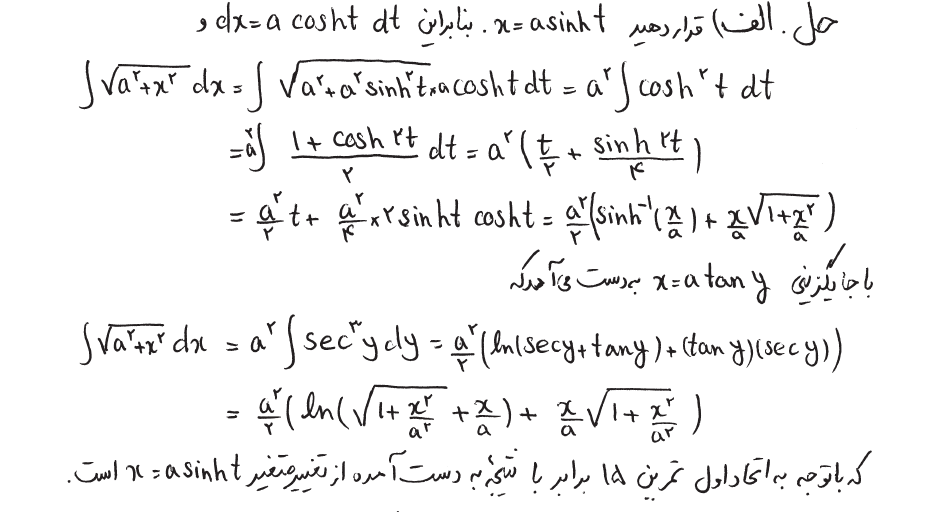 حل. الف) قرار دهید x = a sinh t. بنابراین dx = a cosh t dt و
∫√(a^۲+x^۲) dx = ∫ √(a^۲+a^۲ sinh^۲ t) × a cosh t dt = a^۲ ∫ cosh^۲ t dt
= a^۲ ∫ (۱ + cosh ۲t)/۲ dt = a^۲ (t/۲ + (sinh ۲t)/۴)
= a^۲/۲ t + a^۲/۴ × ۲ sinh t cosh t = a^۲/۲ (sinh^-۱(x/a) + x/a √(۱+x^۲/a))
با جایگزینی x = a tan y به دست می‌آید که
∫√(a^۲+x^۲) dx = a^۲ ∫ sec^۳ y dy = a^۲/۲ (ln(sec y + tan y) + (tan y)(sec y))
= a^۲/۲ (ln(√(۱+x^۲/a^۲) + x/a) + x/a √(۱+x^۲/a^۲))
که با توجه به اتحاد اول تمرین ۱۵ برابر با نتیجهٔ به دست آمده از تغییر متغیر x = a sinh t است.